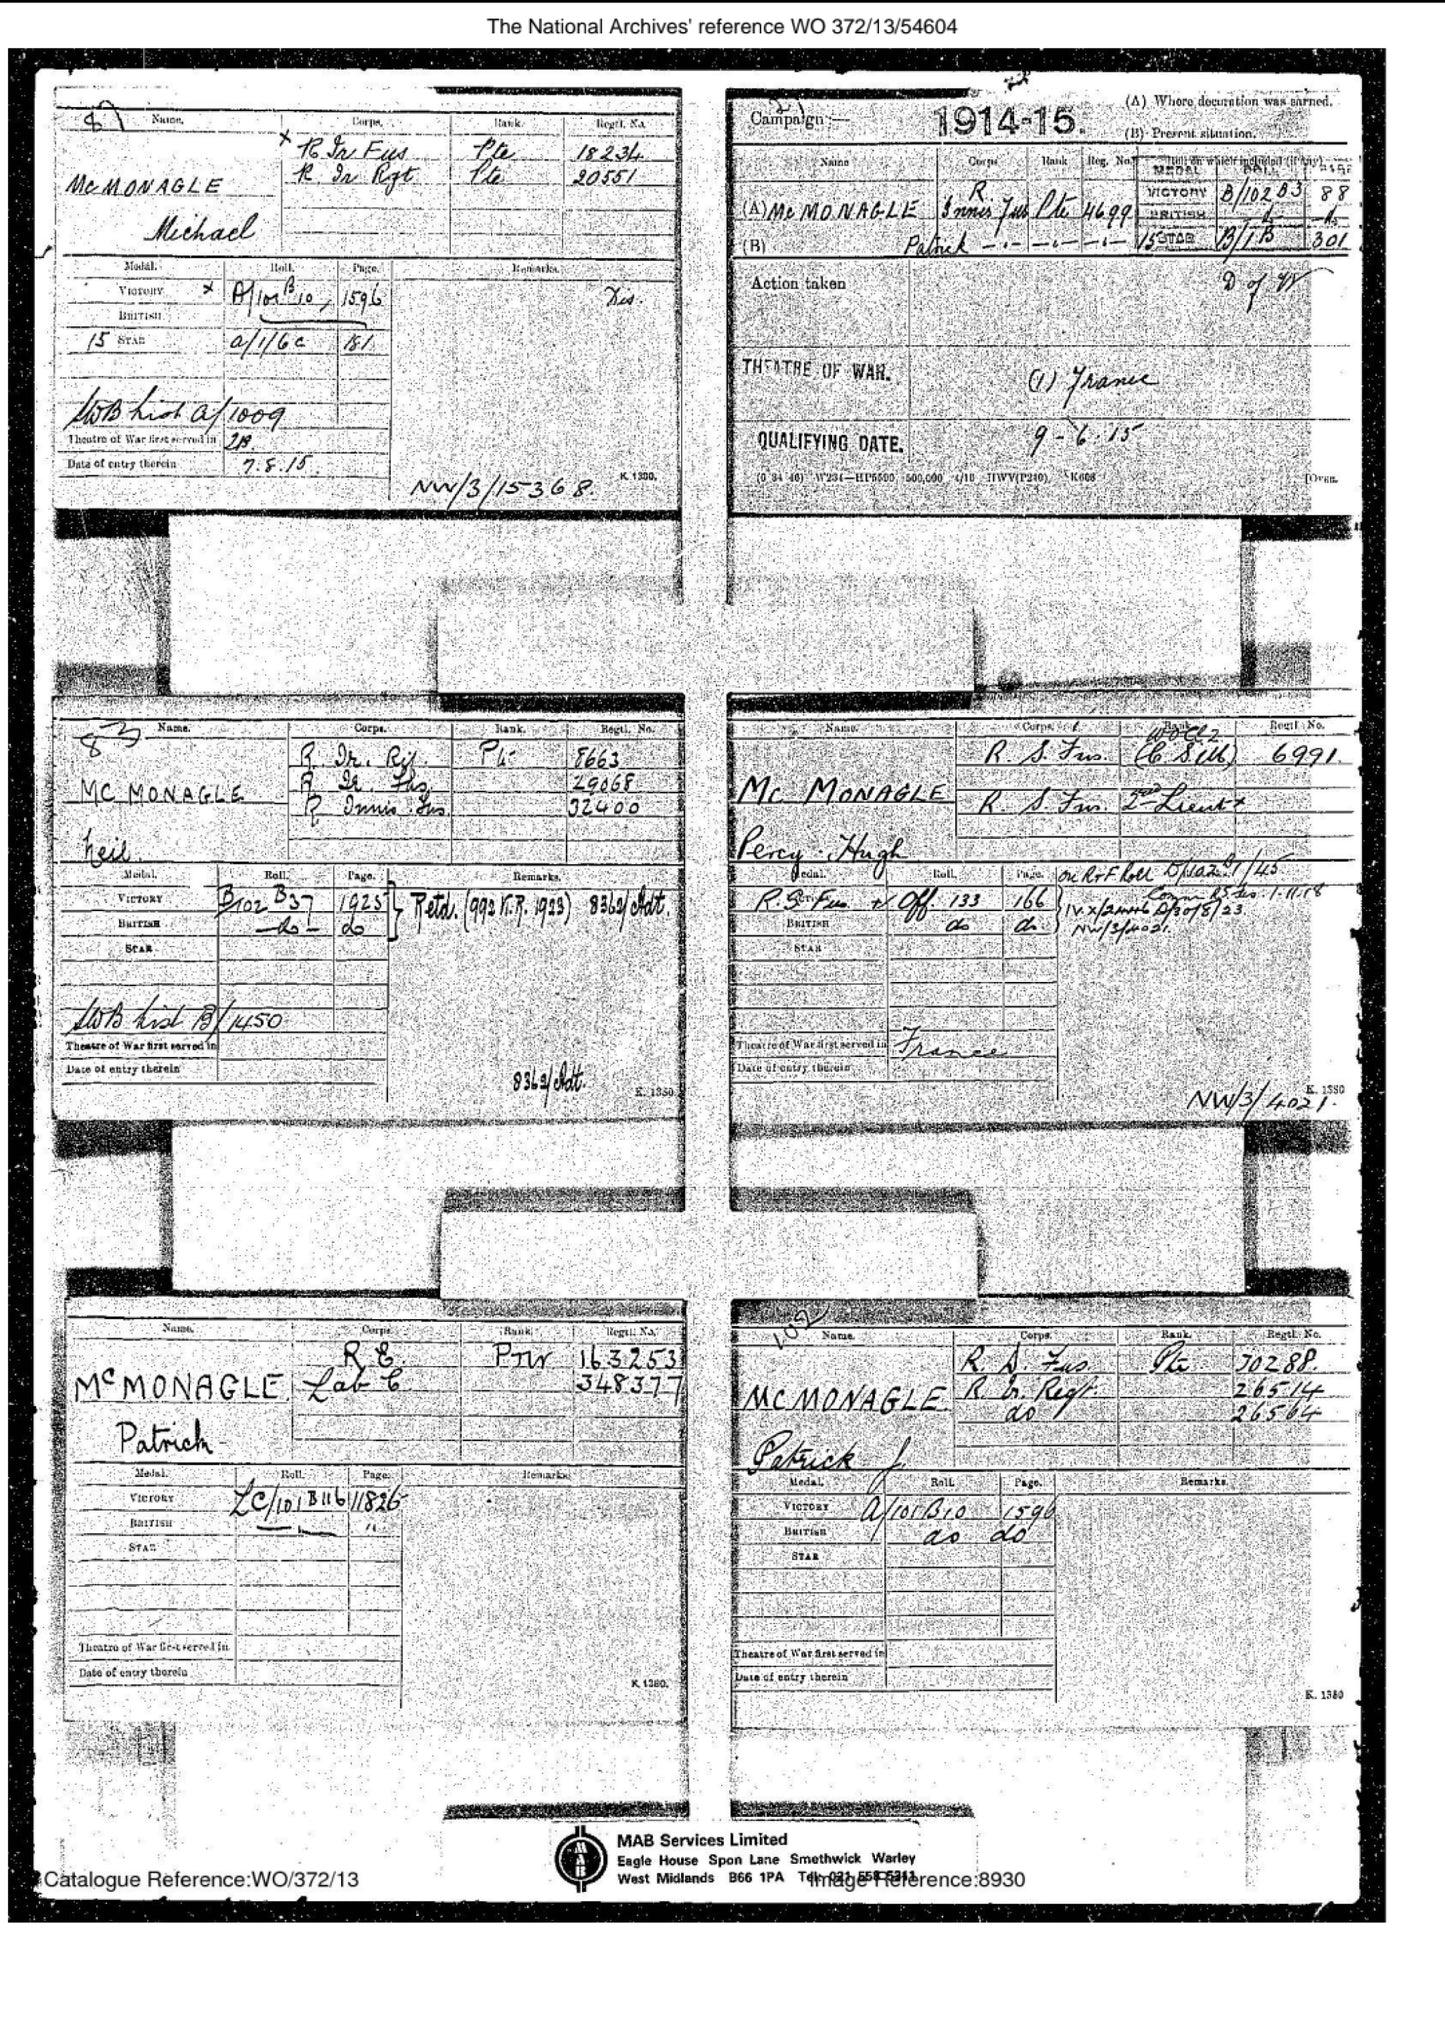 The National Archives' reference WO 372/13/54604
Name. Corps. Rank. Regtl. No.
x R Ir Fus Pte 18234
R. Ir Rgt Pte 20551
McMONAGLE
Michael
Medal. Roll. Page. Remarks.
VICTORY x A/101 B10, 1596 Dis.
BRITISH
15 STAR A/1/6c 181
SWB List A/1009
Theatre of War first served in 2B.
Date of entry therein 7.8.15.
NW/3/15368. K. 1380.
Campaign:— 1914-15. (A) Where decoration was earned.
(B) Present situation.
Name Corps Rank Reg. No. Roll on which included (if any)
MEDAL ROLL PAGE
R VICTORY B/102 B3 88
(A) McMONAGLE Innis Fus Pte 4699 BRITISH
(B) Patrick 15 STAR B/1B 301
Action taken D of W
THEATRE OF WAR. (1) France
QUALIFYING DATE. 9-6-15
K608 [OVER.
83 Name. Corps. Rank. Regtl. No.
R. Ir. Rif. Pte 8663
R Ir. Fus. 29068
MC MONAGLE R Innis Fus. 32400
Neil
Medal. Roll. Page. Remarks.
VICTORY B/102 B37 1925 Retd. (992 K.R. 1923) 8362/Adt.
BRITISH do do
STAR
SWB List B/1450
Theatre of War first served in
Date of entry therein
8362/Adt. K. 1380
Name. Corps. Rank. Regtl. No.
WO Cl 2
R. S. Fus. (C.S.M) 6991.
Mc MONAGLE R. S. Fus. 2nd Lieut
Percy Hugh
Medal. Roll. Page. on R & F Roll
R. S. Fus Off 133 166
BRITISH do do
NW/3/4021.
STAR
Theatre of War first served in France
Date of entry therein
K. 1380
NW/3/4021.
Name. Corps. Rank. Regtl. No.
R E. Pnr 163253
McMONAGLE Lab C. 348377
Patrick
Medal. Roll. Page. Remarks.
VICTORY LC/101 B116 11826
BRITISH
STAR
Theatre of War first served in
Date of entry therein
K. 1380.
102 Name. Corps. Rank. Regtl. No.
R. D. Fus. Pte 30288.
MCMONAGLE. R Ir. Regt. 26514
do 26564
Patrick J.
Medal. Roll. Page. Remarks.
VICTORY A/101 B10 1596
BRITISH do do
STAR
Theatre of War first served in
Date of entry therein
K. 1380
MAB
MAB Services Limited
Eagle House Spon Lane Smethwick Warley
West Midlands B66 1PA
Catalogue Reference:WO/372/13 Image Reference:8930